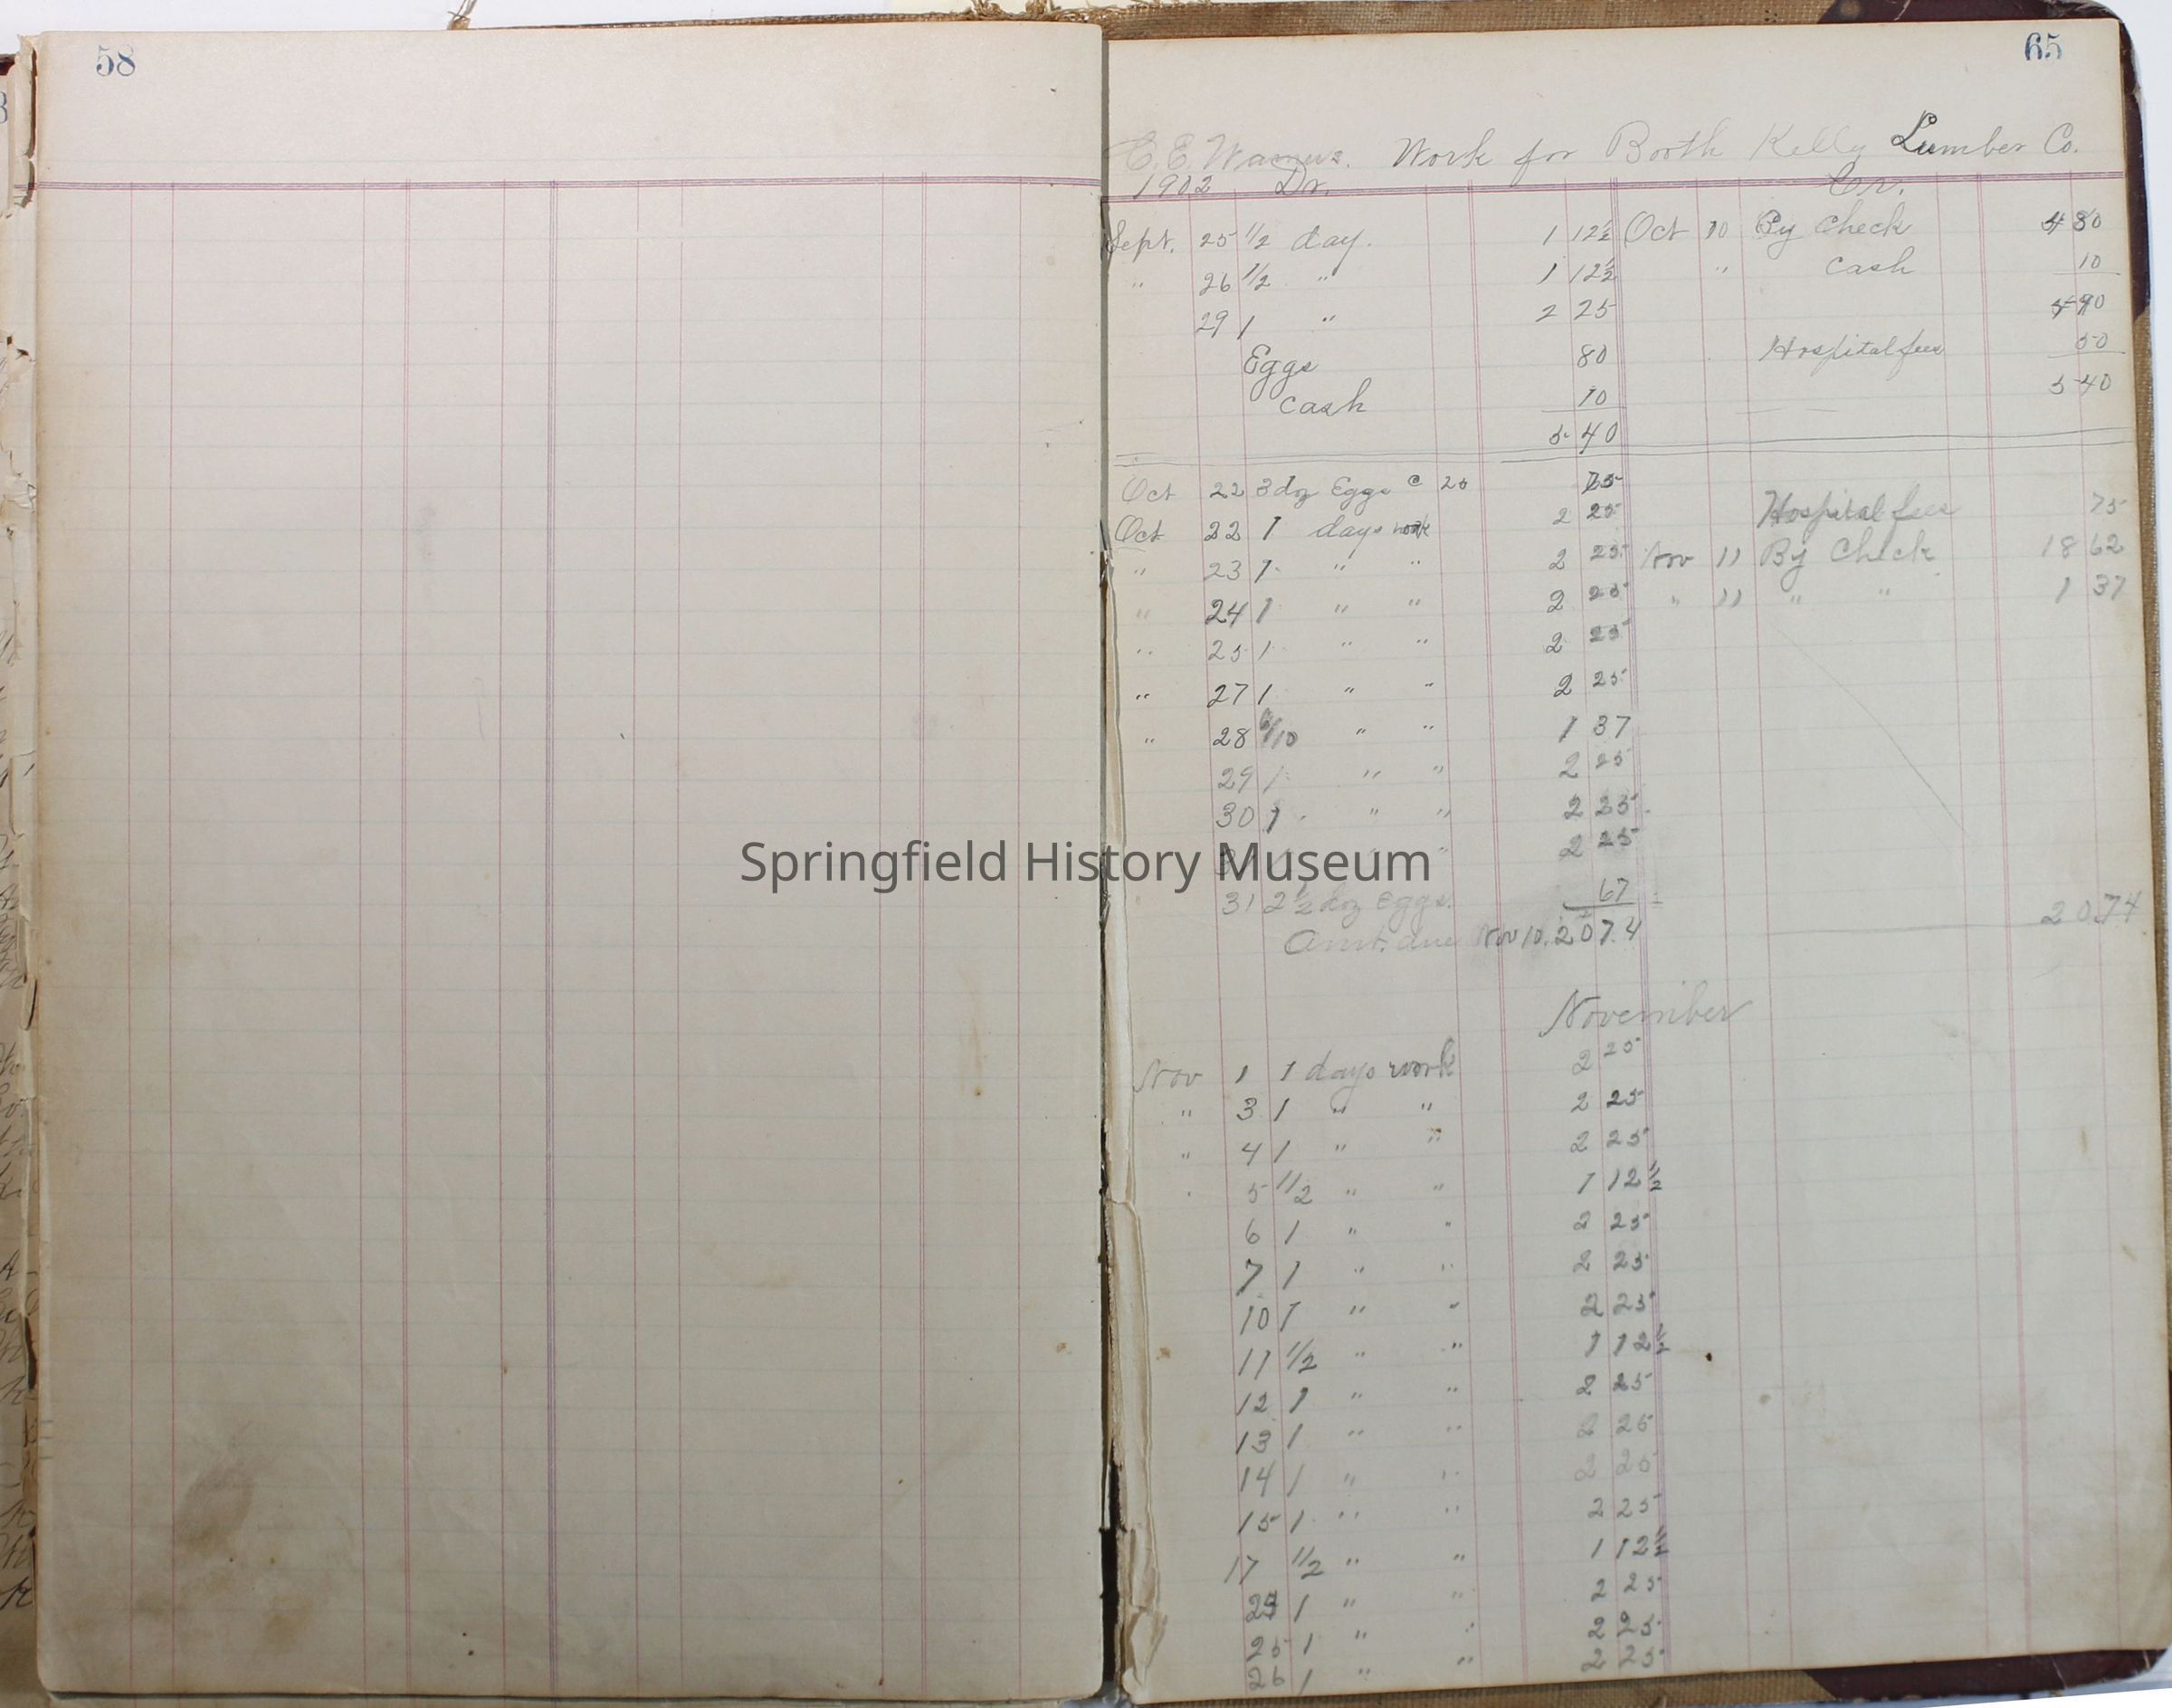 58
65
C. E. Warner. Work for Booth Kelly Lumber Co.
1902 Dr. Cr.
Sept. 25 1/2 day. 1 12½ Oct 10 By Check 4 80
" 26 1/2 " 1 12½ " Cash 10
29 1 " 2 25 4 90
Eggs 80 Hospital fees 50
Cash 10 5 40
5 40
Oct 22 3 doz Eggs c 25 75
Oct 22 1 days work 2 25 Hospital fees 75
" 23 1 " " 2 25 Nov 11 By Check 18 62
" 24 1 " " 2 25 " 11 " " 1 37
" 25 1 " " 2 25
" 27 1 " " 2 25
" 28 6/10 " " 1 37
29 1 " " 2 25
30 1 " " 2 25
31 1 " 2 25
Springfield History Museum
31 2½ doz Eggs. 67
Amt. due Nov 10. 20 7.4 20.74
November
Nov 1 1 days work 2 25
" 3 1 " " 2 25
" 4 1 " " 2 25
" 5 1/2 " " 1 12½
6 1 " " 2 25
7 1 " " 2 25
10 1 " " 2 25
11 1/2 " " 1 12½
12 1 " " 2 25
13 1 " " 2 25
14 1 " " 2 25
15 1 " " 2 25
17 1/2 " " 1 12½
24 1 " " 2 25
25 1 " " 2 25
26 1 " " 2 25